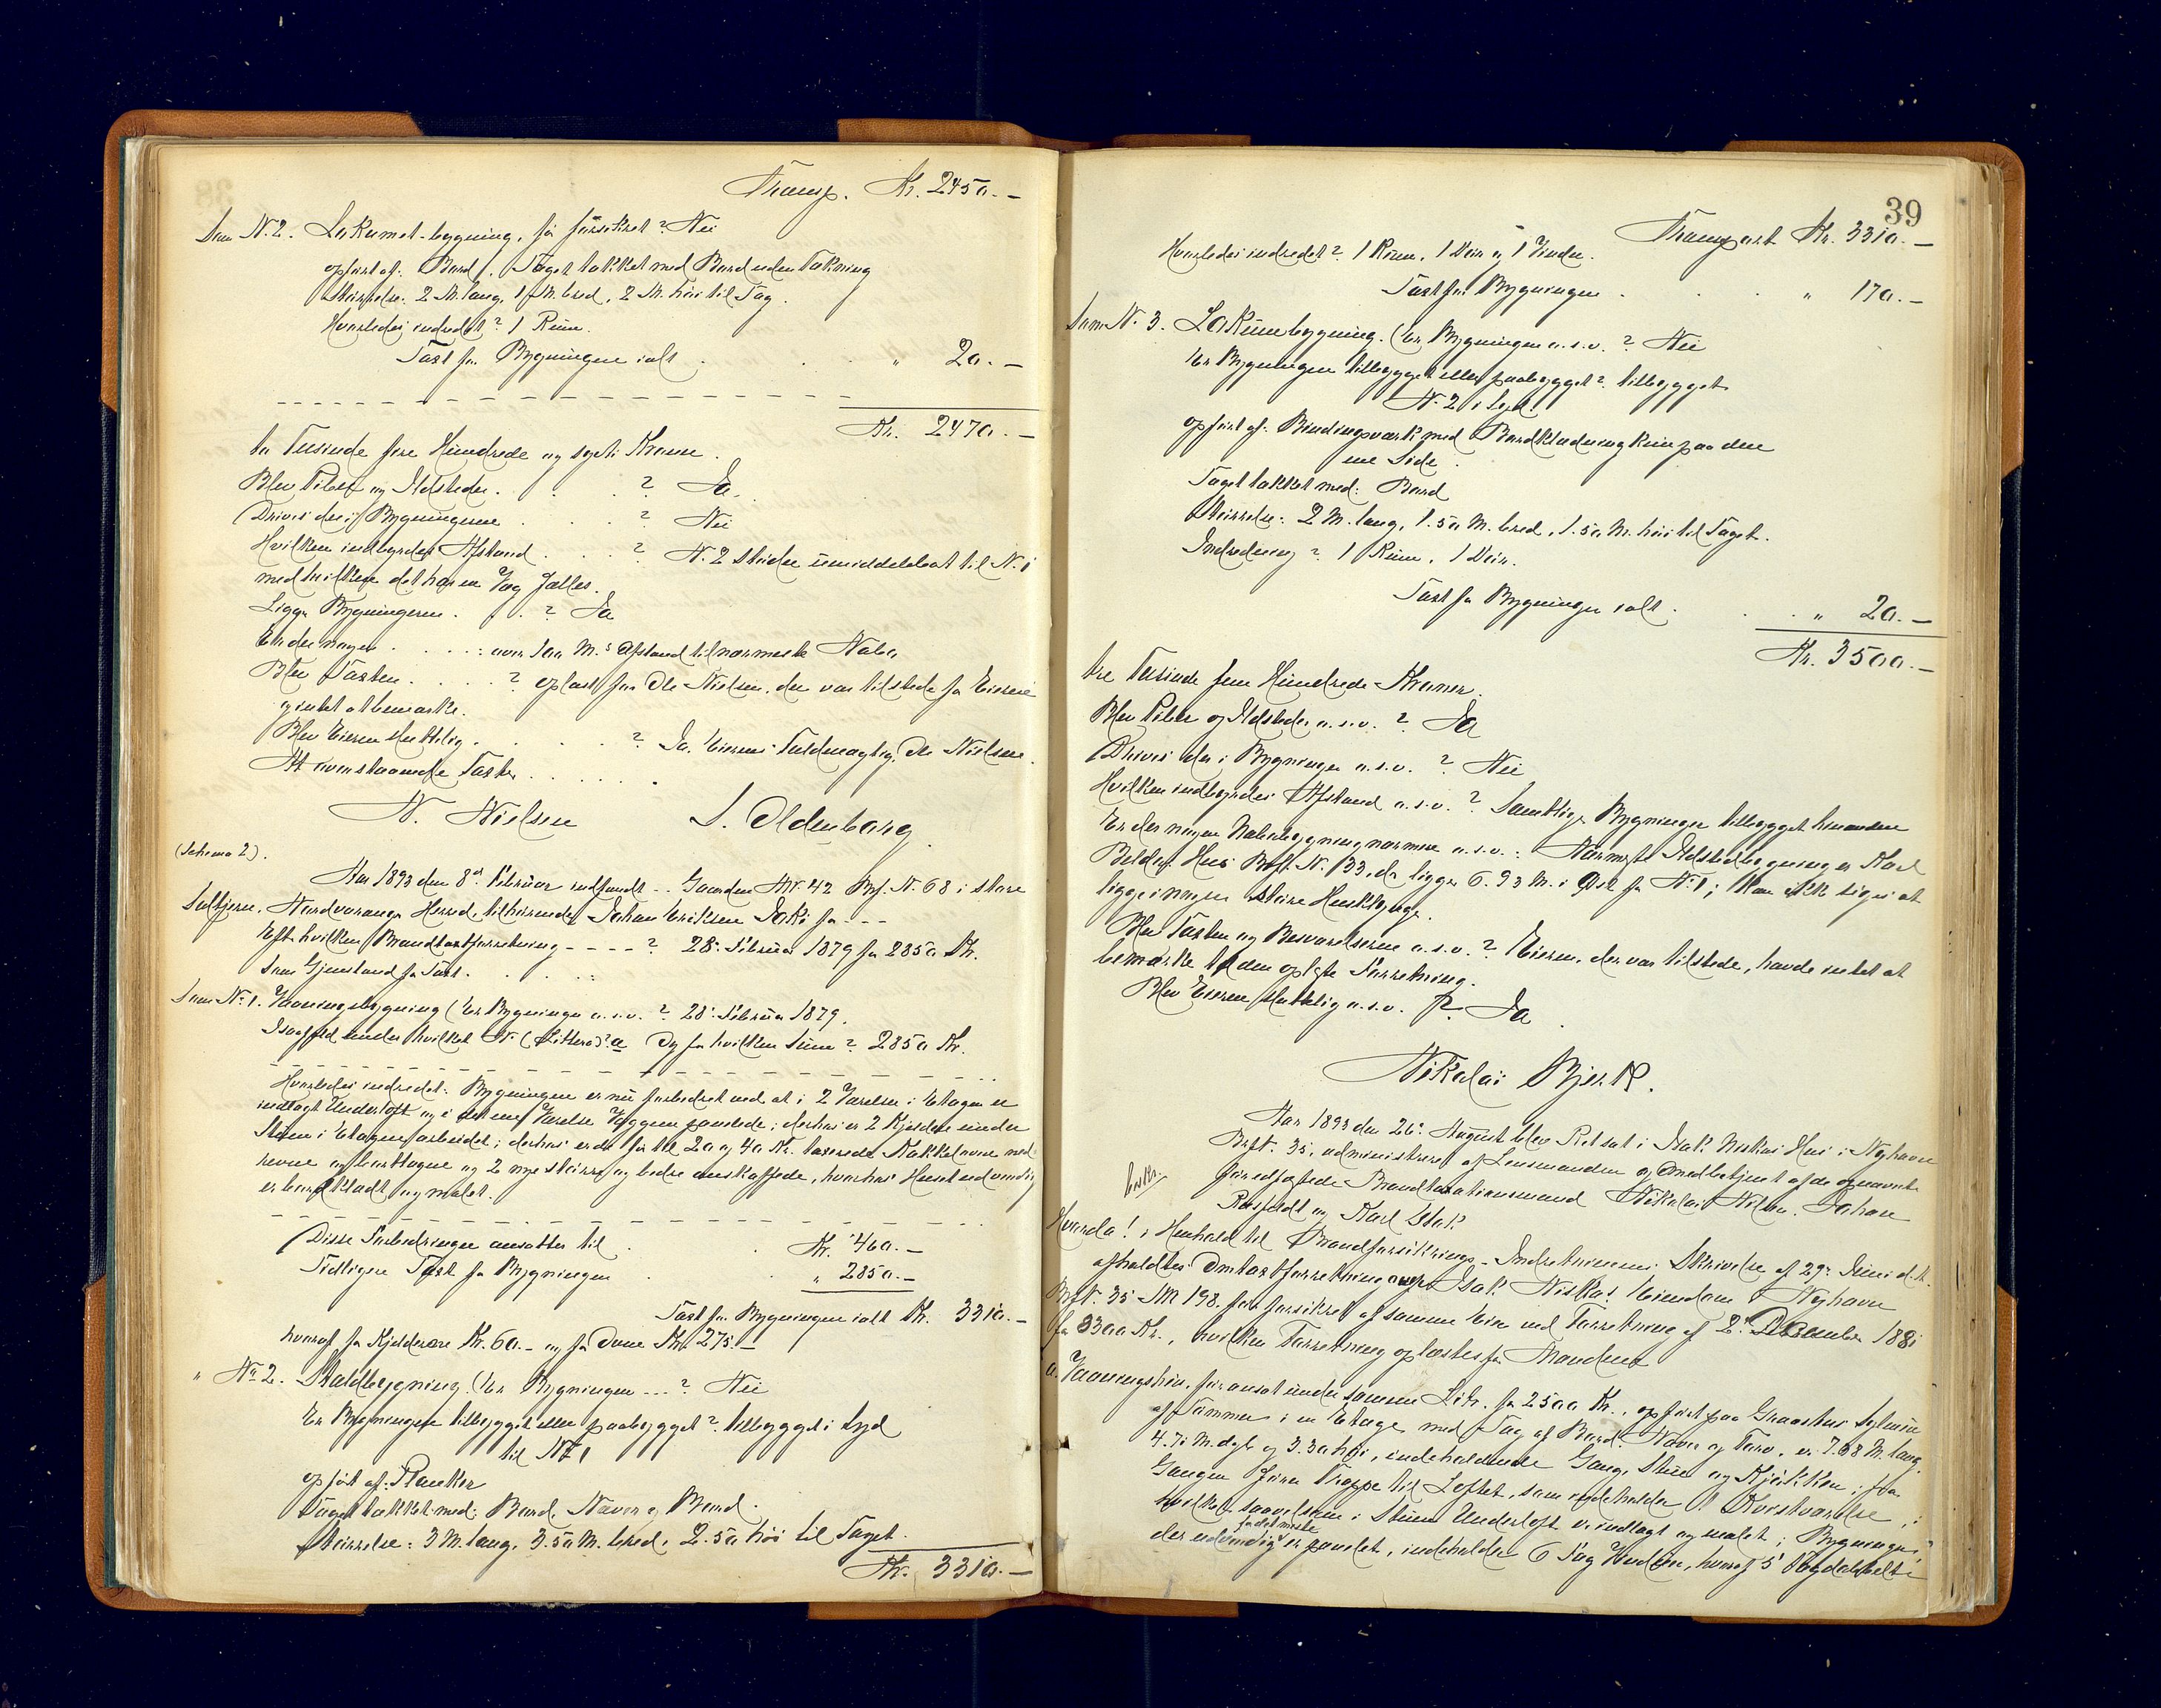 Transp. Kr. 2450.-
Som N. 2. Lokumet-bygning, før forsikret? Nei
opført af: Bord. Taget tækket med Bord uden Tækning
Størrelse: 2 M. lang, 1 M. bred, 2 M. høi til Tag.
Hvorledes indredet? 1 Rum.
Taxt for Bygningen ialt . . . " 20.-
Kr. 2470.-
to Tusinde fire Hundrede og sytti Kroner.
Blev Piber og Ildsteder . . . ? Ja.
Drives der i Bygningerne . . . ? Nei
Hvilken indbyrdes Afstand . . . ? N. 2 støder umiddelbart til N. 1
med hvilken det har en Væg fælles.
Ligger Bygningerne . . . ? Ja
Er der nogen . . . : over 100 M.s Afstand til nærmeste Nabo
Blev Taxten . . . ? oplæst for Ole Nielsen, der var tilstede for Eieren
og intet at bemærke.
Blev Eieren skriftlig . . . ? Ja. Eierens Fuldmægtig Ole Nielsen.
At ovenstaaende Taxter . . . . . .
N. Nielsen S. Oldenborg
(Schema 2).
Aar 1893 den 8de Februar indfandt -- Gaarden Mt. 42 Brf. N. 68 i store
Solbjerr, Nordvaranger Herred, tilhørende Johan Eriksen Joki for --
Efter hvilken Brandtaxtforretning ---- ? 28. Februar 1879 for 2850 Kr.
Som Gjenstand for Taxt . . . . :
Som N. 1. Vaaningsbygning (Er Bygningen o.s.v. ? 28. Februar 1879.
Isaafald under hvilket N. (Littera)? a Og for hvilken Sum? 2850 Kr.
Hvorledes indredet: Bygningen er nu forbedret ved at i 2 Værelser i Etagen er
indlagt Underloft og i det ene Værelse Væggene panelede; derhos er 2 Kjeldere under
Stuen i Etagen arbeidet; derhos er de før til 20 og 40 Kr. taxerede Kakkelovne ned-
revne og borttagne og 2 nye større og bedre anskaffede, hvorhos Huset udvendig
er bordklædt og malet.
Disse Forbedringer ansættes til . . Kr. 460.-
Tidligere Taxt for Bygningen . . " 2850.-
Taxt for Bygningen ialt Kr. 3310.-
hvoraf for Kjelderen Kr. 60.- og for Ovne Kr. 275.-
" No 2. Staldbygning. (Er Bygningen ---? Nei
Er Bygningen tilbygget eller paabygget? tilbygget i Syd
til N. 1
opført af: Planker
Taget tækket med: Bord, Næver og Bord.
Størrelse: 3 M. lang, 3.50 M. bred, 2.50 høi til Taget.
Kr. 3310.-
39
Transport Kr. 3310.-
Hvorledes indredet? 1 Rum, 1 Dør og 1 Vindu.
Taxt for Bygningen . . . " 170.-
Som N. 3. Lokumbygning. (Er Bygningen o.s.v. ? Nei
Er Bygningen tilbygget eller paabygget? tilbygget
N. 2 i Syd
opført af: Bindingsværk med Bordklædning kun paa den
ene Side.
Taget tækket med: Bord
Størrelse: 2 M. lang, 1.50 M. bred, 1.50 M. høi til Taget.
Indredning? 1 Rum, 1 Dør.
Taxt for Bygningen ialt . . . " 20.-
Kr. 3500.-
tre Tusinde fem Hundrede Kroner.
Blev Piber og Ildsteder o.s.v. ? Ja
Drives der i Bygninger o.s.v. ? Nei
Hvilken indbyrdes Afstand o.s.v. ? Samtlige Bygninger tilbygget hinanden
Er der nogen Nabobygning nærmere o.s.v. : Nærmeste Ildstedbygning er Karl
Hus Brf. N. 133, der ligger 6.93 M. i Øst for N. 1; kan ikke siges at
ligge i nogen større Husklynge.
Blev Taxten og Besvarelserne o.s.v. ? Eieren, der var tilstede, havde intet at
bemærke til den oplæste Forretning.
Blev Eieren skriftlig o.s.v. ? Ja.
Nikolai Bjerk.
Aar 1893 den 26. August blev Ret sat i Isak Niskas Hus i Nyhavn
Brf. 35, administreret af Lensmanden og medbetjent af de opnævnte
foredfæstede Brandtaxationsmænd Nikolai Nilsen, Johan
og Karl
Hvorda! i Henhold til Brandforsikrings-Indretningens Skrivelse af 29. Juni d.A.
afholdtes Omtaxtforretning over Isak Niskas Eiendom i Nyhavn
Brf. 35 M 198. før forsikret af samme Eier ved Forretning af 2. December 1881
for 3300 Kr., hvilken Forretning oplæstes for Mændene
a. Vaaningshus, før ansat under samme Litr. for 2500 Kr., opført paa Graastens Sylmur
af Tømmer i en Etage med Tag af Bord, Næver og Torv, er 7.68 M. lang,
4.71 M. dyb og 3.30 høi, indeholdende Gang, Stue og Kjøkken; fra
Gangen fører Trappe til Loftet, som indeholder 1 Kvistværelse, i
hvilket saavelsom i Stuen Underloft er indlagt og malet; Bygningen,
for det meste
der udvendig er panelet, indeholder 6 Fag Vinduer, hvoraf 5